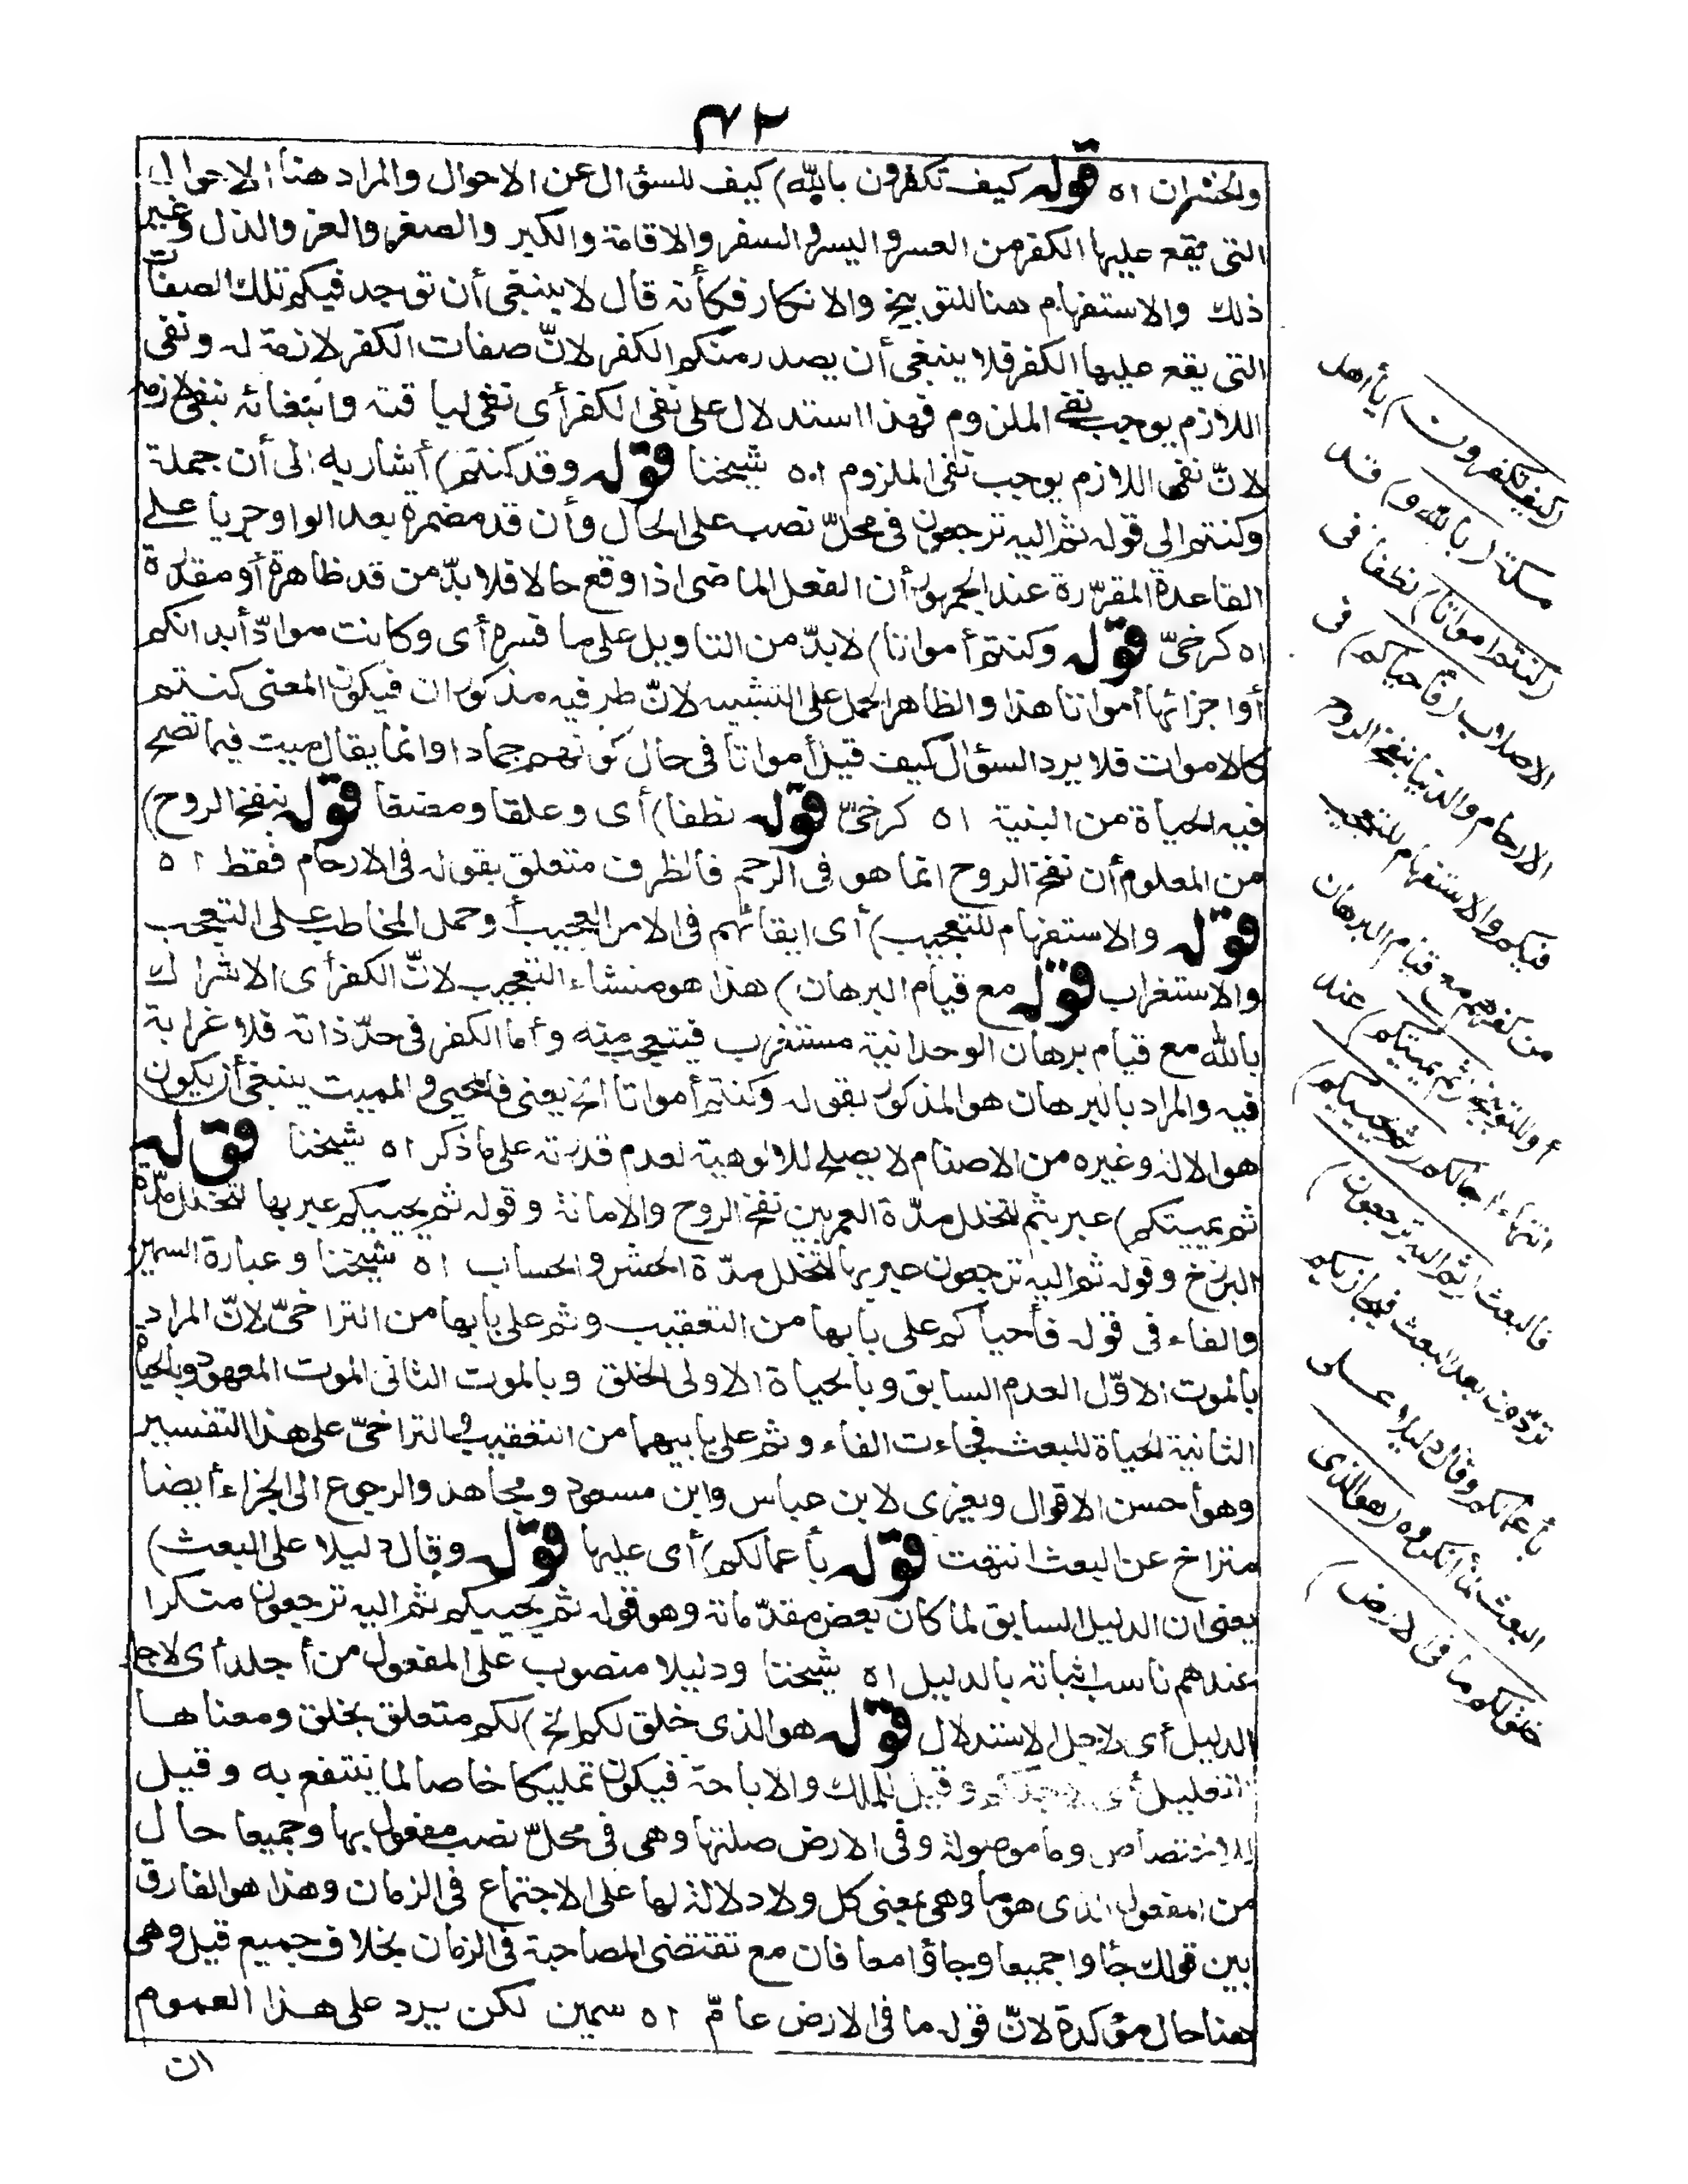 ٤٢
والخسران اه قوله كيف تكفرون بالله) كيف للسؤال عن الاحوال والمراد هنا الاحوال
التى يقع عليها الكفر من العسر واليسر والسفر والاقامة والكبر والصغر والعز والذل وغير
ذلك والاستفهام هنا للتوبيخ والانكار فكأنه قال لا ينبغى أن توجد فيكم تلك الصفات
التى يقع عليها الكفر فلا ينبغى أن يصدر منكم الكفر لانّ صفات الكفر لازمة له ونفى
اللازم يوجب نفى الملزوم فهذا استدلال على نفى الكفر أى نفى لياقته وابتغائه بنفى لازمه
لانّ نفى اللازم يوجب نفى الملزوم اه شيخنا قوله وقد كنتم) أشار به الى أن جملة
وكنتم الى قوله ثم اليه ترجعون فى محلّ نصب على الحال وأن قد مضمرة بعد الواو جريا على
القاعدة المقرّرة عند الجمهور أن الفعل الماضى اذا وقع حالا فلا بدّ من قد ظاهرة أو مقدّرة
اه كرخىّ قوله وكنتم أمواتا) لا بدّ من التاويل على ما فسره أى وكانت موادّ أبدانكم
أو اجزائها أمواتا هذا والظاهر الحمل على التشبيه لانّ طرفيه مذكوران فيكون المعنى كنتم
كالاموات فلا يرد السؤال كيف قيل أمواتا فى حال كونهم جمادا وانما يقال ميت فيما تصح
فيه الحياة من البنية اه كرخىّ قوله نطفا) أى وعلقا ومضغا قوله بنفخ الروح)
من المعلوم أن نفخ الروح انما هو فى الرحم فالظرف متعلق بقوله فى الارحام فقط اه
قوله والاستفهام للتعجيب) أى ايقائهم فى الامر العجيب أ وحمل المخاطب على التعجب
والاستغراب قوله مع قيام البرهان) هذا هو منشاء التعجيب لانّ الكفر أى الاشراك
بالله مع قيام برهان الوحدانية مستغرب فيتعجب منه وأما الكفر فى حدّ ذاته فلا غرابة
فيه والمراد بالبرهان هو المذكور بقوله وكنتم أمواتا الخ يعنى فالمحيى والمميت ينبغى أن يكون
هو الاله وغيره من الاصنام لا يصلح للالوهية لعدم قدرته على ما ذكر اه شيخنا قوله
ثم يميتكم) عبر بثم لتخلل مدّة العمر بين نفخ الروح والاماتة وقوله ثم يحييكم عبر بها لتخلل مدّة
البرزخ وقوله ثم اليه ترجعون عبر بها لتخلل مدّة الحشر والحساب اه شيخنا وعبارة السمين
والفاء فى قوله فأحياكم على بابها من التعقيب وثم على بابها من التراخىّ لانّ المراد
بالموت الاوّل العدم السابق وبالحياة الاولى الخلق وبالموت الثانى الموت المعهود وبالحياة
الثانية الحياة للبعث فجاءت الفاء وثم على بابيهما من التعقيب والتراخىّ على هذا التفسير
وهو أحسن الاقوال ويعزى لابن عباس وابن مسعود ومجاهد والرجوع الى الجزاء أيضا
متراخ عن البعث انتهت قوله بأعمالكم) أى عليها قوله وقال دليلا على البعث)
يعنى ان الدليل السابق لما كان بعض مقدّماته وهو قوله ثم يحييكم ثم اليه ترجعون منكرا
عندهم ناسب اثباته بالدليل اه شيخنا ودليلا منصوب على المفعول من أجله أى لاجل
الدليل أى لاجل الاستدلال قوله هو الذى خلق لكم الخ) لكم متعلق بخلق ومعناها
التعليل أى لاجلكم وقيل للملك والاباحة فيكون تمليكا خاصا لما ينتفع به وقيل
للاختصاص وما موصولة وفى الارض صلتها وهى فى محلّ نصب مفعول بها وجميعا حال
من المفعول الذى هو ما وهى بمعنى كل ولا دلالة لها على الاجتماع فى الزمان وهذا هو الفارق
بين قولك جاوا جميعا وجاؤا معا فان مع تقتضى المصاحبة فى الزمان بخلاف جميع قيل وهى
هنا حال مؤكدة لانّ قوله ما فى الارض عامّ اه سمين لكن يرد على هذا العموم
ان
(كيف تكفرون) يأ اهل
مكة (بالله و) قد
(كنتم امواتا) نطفا فى
الاصلاب (فأحياكم) فى
الارحام والدنيا بنفخ الروح
فيكم والاستفهام للتعجيب
من كفرهم مع قيام البرهان
أو للتوبيخ (ثم يميتكم) عند
انتهاء اجالكم (ثم يحييكم)
فالبعث (ثم اليه ترجعون)
تردّون بعد البعث فيجازيكم
بأعمالكم وقال دليلا على
البعث لما أنكروه (هو الذى
خلق لكم ما فى الارض)